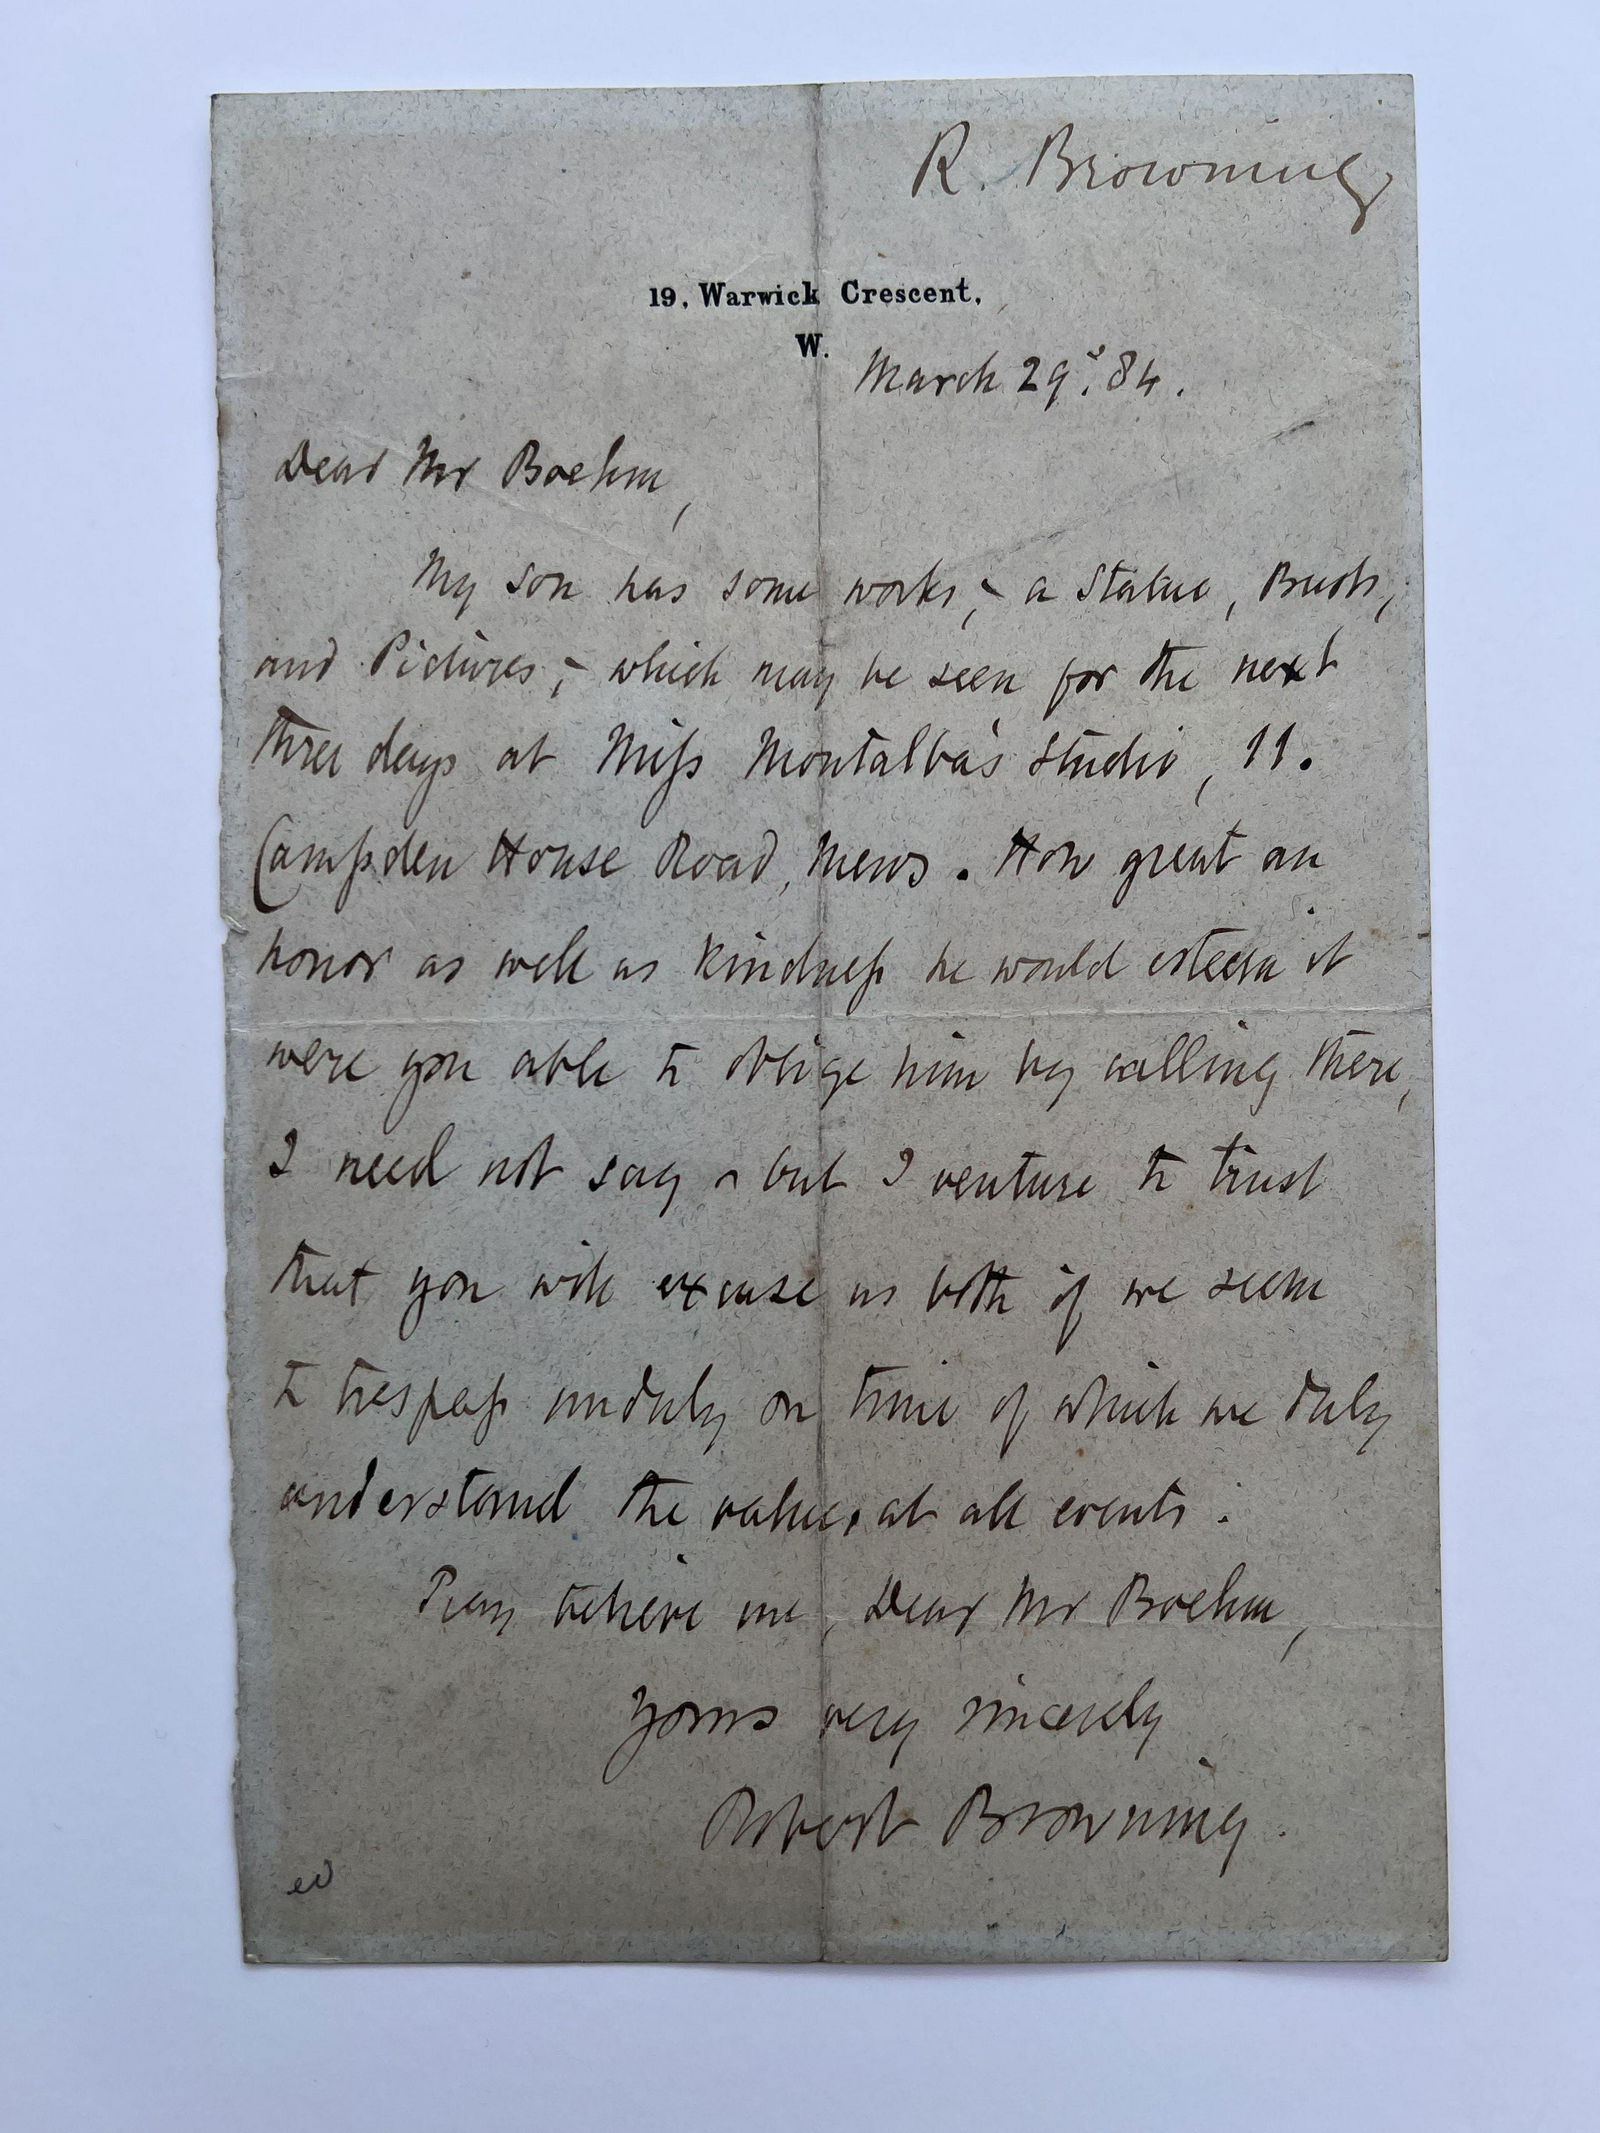 R. Browning
19, Warwick Crescent,
W.
March 29. '84.
Dear Mr Boehm,
My son has some works,- a Statue, Busts,
and Pictures,- which may be seen for the next
three days at Miss Montalba's studio, 11.
Campden House Road, Mews. How great an
honor as well as kindness he would esteem it
were you able to oblige him by calling there,
I need not say - but I venture to trust
that you will excuse us both if we seem
to trespass unduly on time of which we duly
understand the value, at all events.
Pray believe me, Dear Mr Boehm,
Yours very sincerely
Robert Browning.